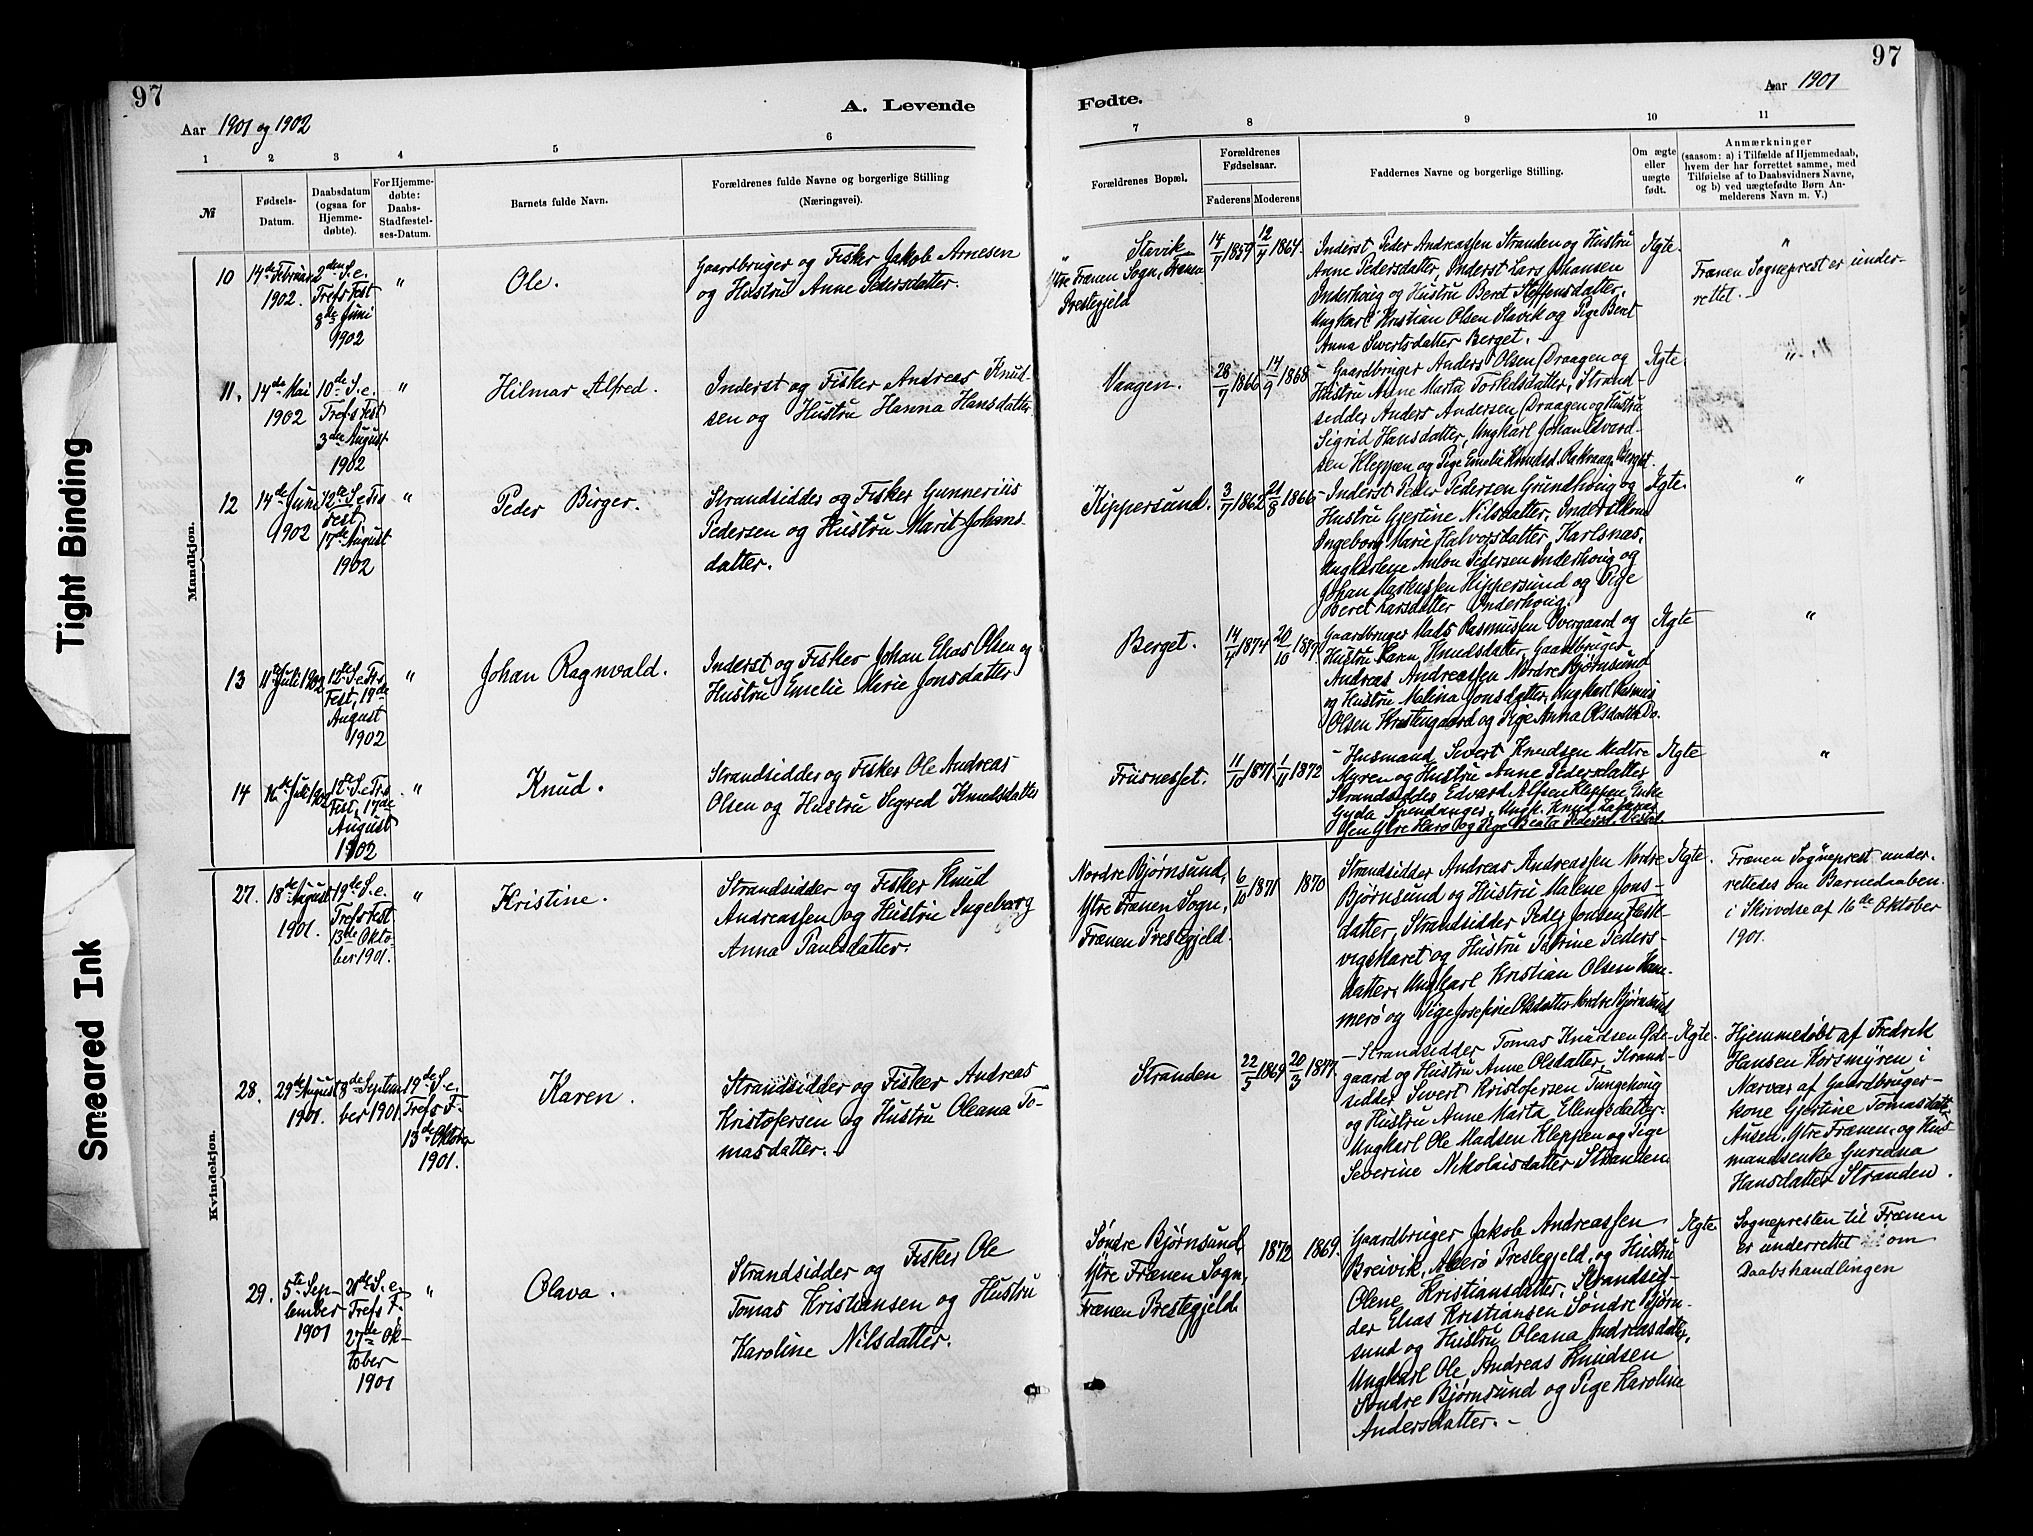 97
Aar 1901 og 1902
A. Levende
1 2 3 4 5 6
№
Fødsels-
Datum.
Daabsdatum
(ogsaa for
Hjemme-
døbte).
For Hjemme-
døbte:
Daabs-
Stadfæstel-
ses-Datum.
Barnets fulde Navn.
Forældrenes fulde Navne og borgerlige Stilling
(Næringsvei).
Mandkjøn.
10
14de Februar
1902.
2den S. e.
Trefs Fest
8de Juni
1902
"
Ole.
Gaardbruger og Fisker Jakob Arnesen
og Hustru Anne Pedersdatter.
11.
14de Mai
1902
10de S. e.
Trefs Fest
3die August
1902
"
Hilmar Alfred.
Inderst og Fisker Andreas Knud-
sen og Hustru Hanna Hansdatter
12
14de Juni
1902
12te S. e. Trs
Fest
17de August
1902
"
Peder Birger.
Strandsidder og Fisker Gunnerius
Pedersen og Hustru Marit Johans-
datter.
13
11te Juli 1902
12te S. e. Trs
Fest, 17de
August
1902
"
Johan Ragnvald.
Inderst og Fisker Johan Elias Olsen og
Hustru Emelie Marie Jonsdatter
14
16de Juli 1902
12te S. e. Trs
Fest, 17de
August
1902
"
Knud.
Strandsidder og Fisker Ole Andreas
Olsen og Hustru Sigred Knudsdatter
Kvindekjøn.
27.
18de August
1901.
19de S. e.
Trefs Fest
13de Okto-
ber 1901.
"
Kristine.
Strandsidder og Fisker Knud
Andreassen og Hustru Ingeborg
Anna Paulsdatter.
28.
29de August
1901.
8de Septem-
ber 1901.
19de S. e.
Trefs F.
13de Oktober
1901.
Karen.
Strandsidder og Fisker Andreas
Kristofersen og Hustru Oleana To-
masdatter.
29.
5te Sep-
tember
1901
21de S. e.
Trefs F.
27de Ok-
tober
1901
"
Olava.
Strandsidder og Fisker Ole
Tomas Kristiansen og Hustru
Karoline Nilsdatter.
Fødte.
Aar 1901
97
7 8 9 10 11
Forældrenes Bopæl.
Forældrenes
Fødselsaar.
Faderens Moderens
Faddernes Navne og borgerlige Stilling.
Om ægte
eller
uægte
født.
Anmærkninger
(saasom: a) i Tilfælde af Hjemmedaab,
hvem der har forrettet samme, med
Tilføielse af to Daabsvidners Navne,
og b) ved uægtefødte Børn An-
melderens Navn m. V.)
Stavik
Ytre Frænen Sogn, Frænen
Prestegjeld
14/7 1859
12/4 1864
Inderst Peder Andreassen Stranden og Hustru
Anne Pedersdatter, Inderst Lars Johansen
Inderhoug og Hustru Beret Steffensdatter,
Ungkarl Kristian Olsen Stavik og Pige Beret
Anna Sivertsdatter Berget.
Ægte.
"
Frænen Sogneprest er under-
rettet.
Vaagen.
28/7 1866
14/9 1868
Gaardbruger Anders Olsen Draagen og
Hustru Anne Marta Torkelsdatter, Strand-
sidder Anders Andersen Draagen og Hustru
Sigrid Hansdatter, Ungkarl Johan Edvard-
sen Kleppen og Pige Emelie Knudsd. Rakvaag, Berget.
Ægte.
"
Kippersund.
3/7 1862
21/8 1866
Inderst Peder Pedersen Grundhoug og
Hustru Gjertine Nilsdatter, Inderstkone
Ingeborg Marie Halvorsdatter, Karlsnæs,
Ungkarlene Anton Pedersen Inderhoug og
Johan Markussen Kippersund og Pige
Beret Larsdatter Inderhoug.
Ægte.
"
Berget.
14/4 1874
20/10 1877
Gaardbruger Mads Rasmussen Overgaard og
Hustru Karen Knudsdatter, Gaardbruger
Andreas Andreassen Nordre Bjørnsund
og Hustru Malina Jonsdatter, Ungkarl Rasmus
Olsen Kristengaard og Pige Anna Olsdatter Do.
Ægte
"
Fursneset.
11/10 1871
1/11 1872
Husmand Sivert Knudsen Medtre
Myren og Hustru Anne Pedersdatter
Strandsidder Edvard Alfsen Kleppen, Enke
Gyda Spendanger, Ungk. Knud Zakarias-
sen Ytre Harø og Pige Beata Pedersd.
Ægte
"
Nordre Bjørnsund,
Ytre Frænen Sogn,
Frænen Prestegjeld.
6/10 1871
1870
Strandsidder Andreas Andreassen Nordre
Bjørnsund og Hustru Malene Jons-
datter, Strandsidder Peder Jonsen Hesse-
vigskaret og Hustru Petrine Peders-
datter, Ungkarl Kristian Olsen Ham-
merø og Pige Josefine Olsdatter Nordre Bjørnsund
Ægte.
Frænen Sogneprest under-
rettedes om Barnedaaben
i Skrivelse af 16de Oktober
1901.
Stranden
22/5 1869
20/3 1877
Strandsidder Tomas Knudsen Øde-
gaard og Hustru Anne Olsdatter, Strand-
sidder Sivert Kristofersen Tungehoug
og Hustru Anne Marta Ellingsdatter,
Ungkarl Ole Madsen Kleppen og Pige
Severine Nikolaisdatter Stranden.
Ægte.
Hjemmedøbt af Fredrik
Hansen Korsmyren i
Nærvær af Gaardbruger-
kone Gjertine Tomasdatter
Ausen, Ytre Frænen, og Hus-
mandsenke Guriana
Hansdatter Stranden.
Søndre Bjørnsund,
Ytre Frænen Sogn,
Frænen Prestegjeld.
1872
1869.
Gaardbruger Jakob Andreassen
Breivik, Akerø Prestegjeld, og Hustru
Olene Kristiansdatter, Strandsid-
der Elias Kristiansen Søndre Bjørn-
sund og Hustru Oleana Andreasdatter,
Ungkarl Ole Andreas Knudsen
Søndre Bjørnsund og Pige Karoline
Andersdatter.
Ægte
Sognepresten til Frænen
er underrettet om
Daabshandlingen
Tight Binding
Smeared Ink